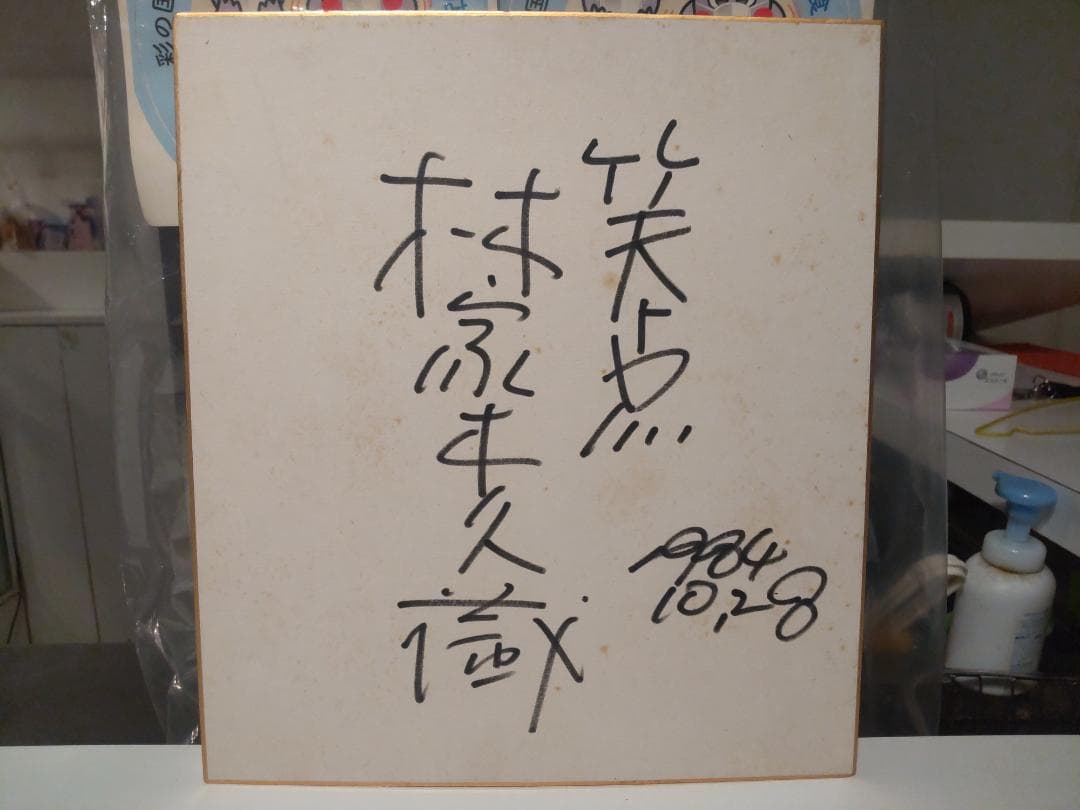 笑点
1984
10,28
林家木久蔵